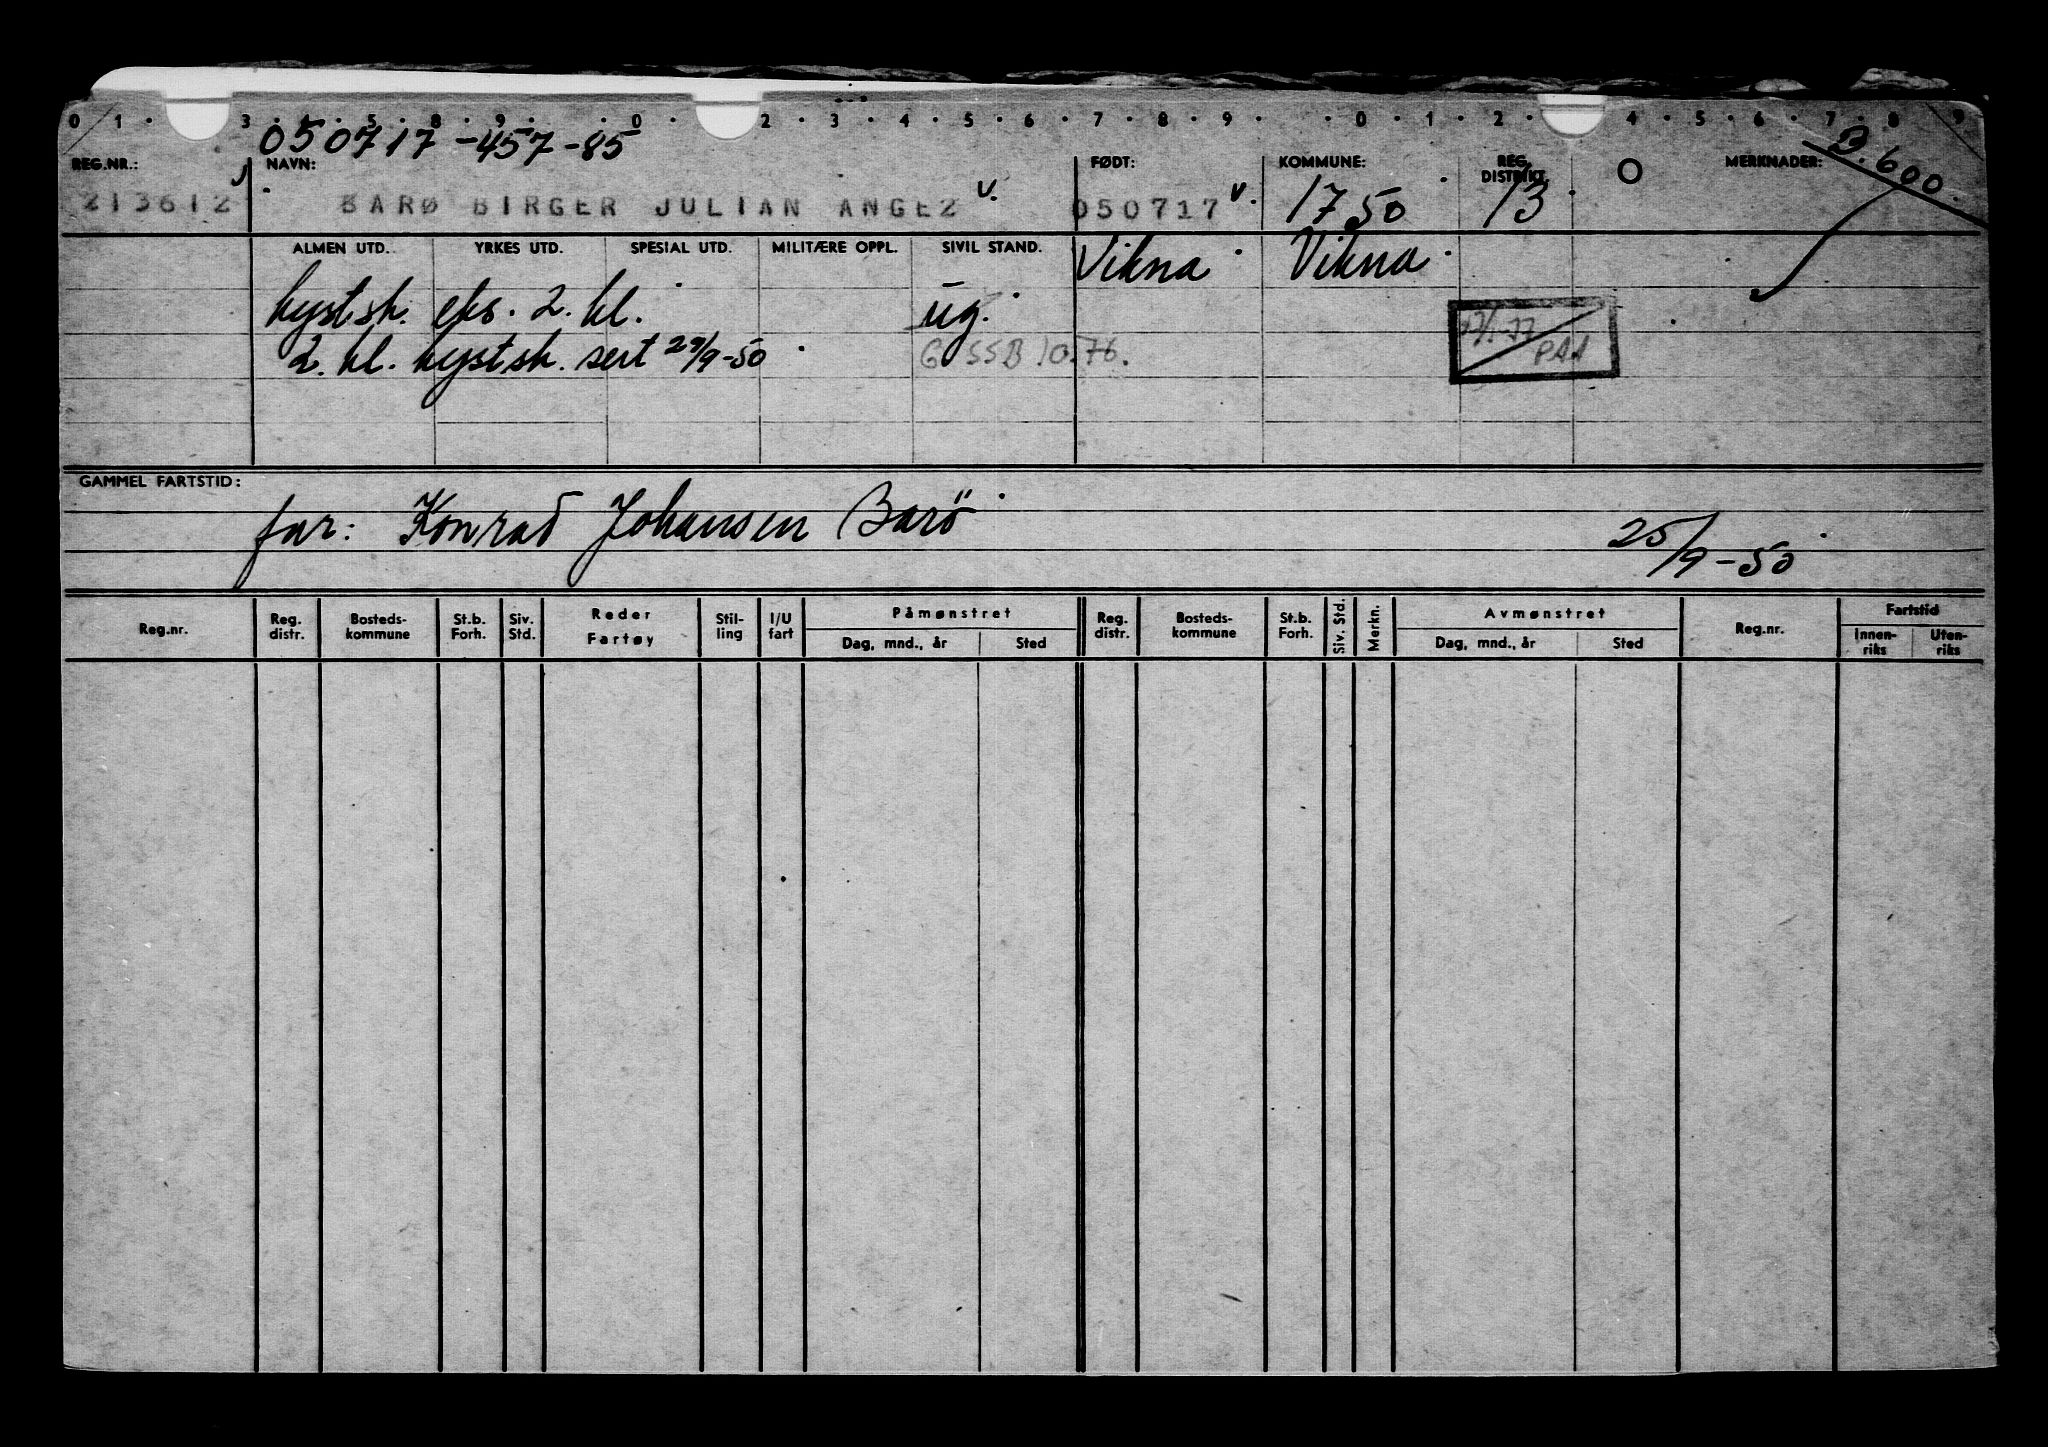 0 1 . 3 . . 5 . 8 . 9 . . 0 . 2 . 3 . 4 . 5 . 6 . 7 . 8 . 9 . . 0 . 1 . 2 . 4 . 5 . 6 . 7 . 8 . 9
050717-457-85
B. 600.
REG.NR.: NAVN: FØDT: KOMMUNE: REG. DISTRIKT. O MERKNADER:
213612 BARØ BIRGER JULIAN ANGEZ v. 050717 v. 1750 13
ALMEN UTD. YRKES UTD. SPESIAL UTD. MILITÆRE OPPL. SIVIL STAND. Vikna Vikna
kystsk. eks. 2. kl. ug.
2. kl. kystsk. sert 29/9-50 G SSB 10.76.
PAA
GAMMEL FARTSTID:
far: Konrad Johansen Barö 25/9-50
Reg.nr. Reg. distr. Bosteds-kommune St.b. Forh. Siv. Std. Reder Fartøy Stil-ling I/U fart Påmønstret Reg. distr. Bosteds-kommune St.b. Forh. Siv. Std. Merkn. Avmønstret Reg.nr. Fartstid
Dag, mnd., år Sted Dag, mnd., år Sted Innen-riks Uten-riks